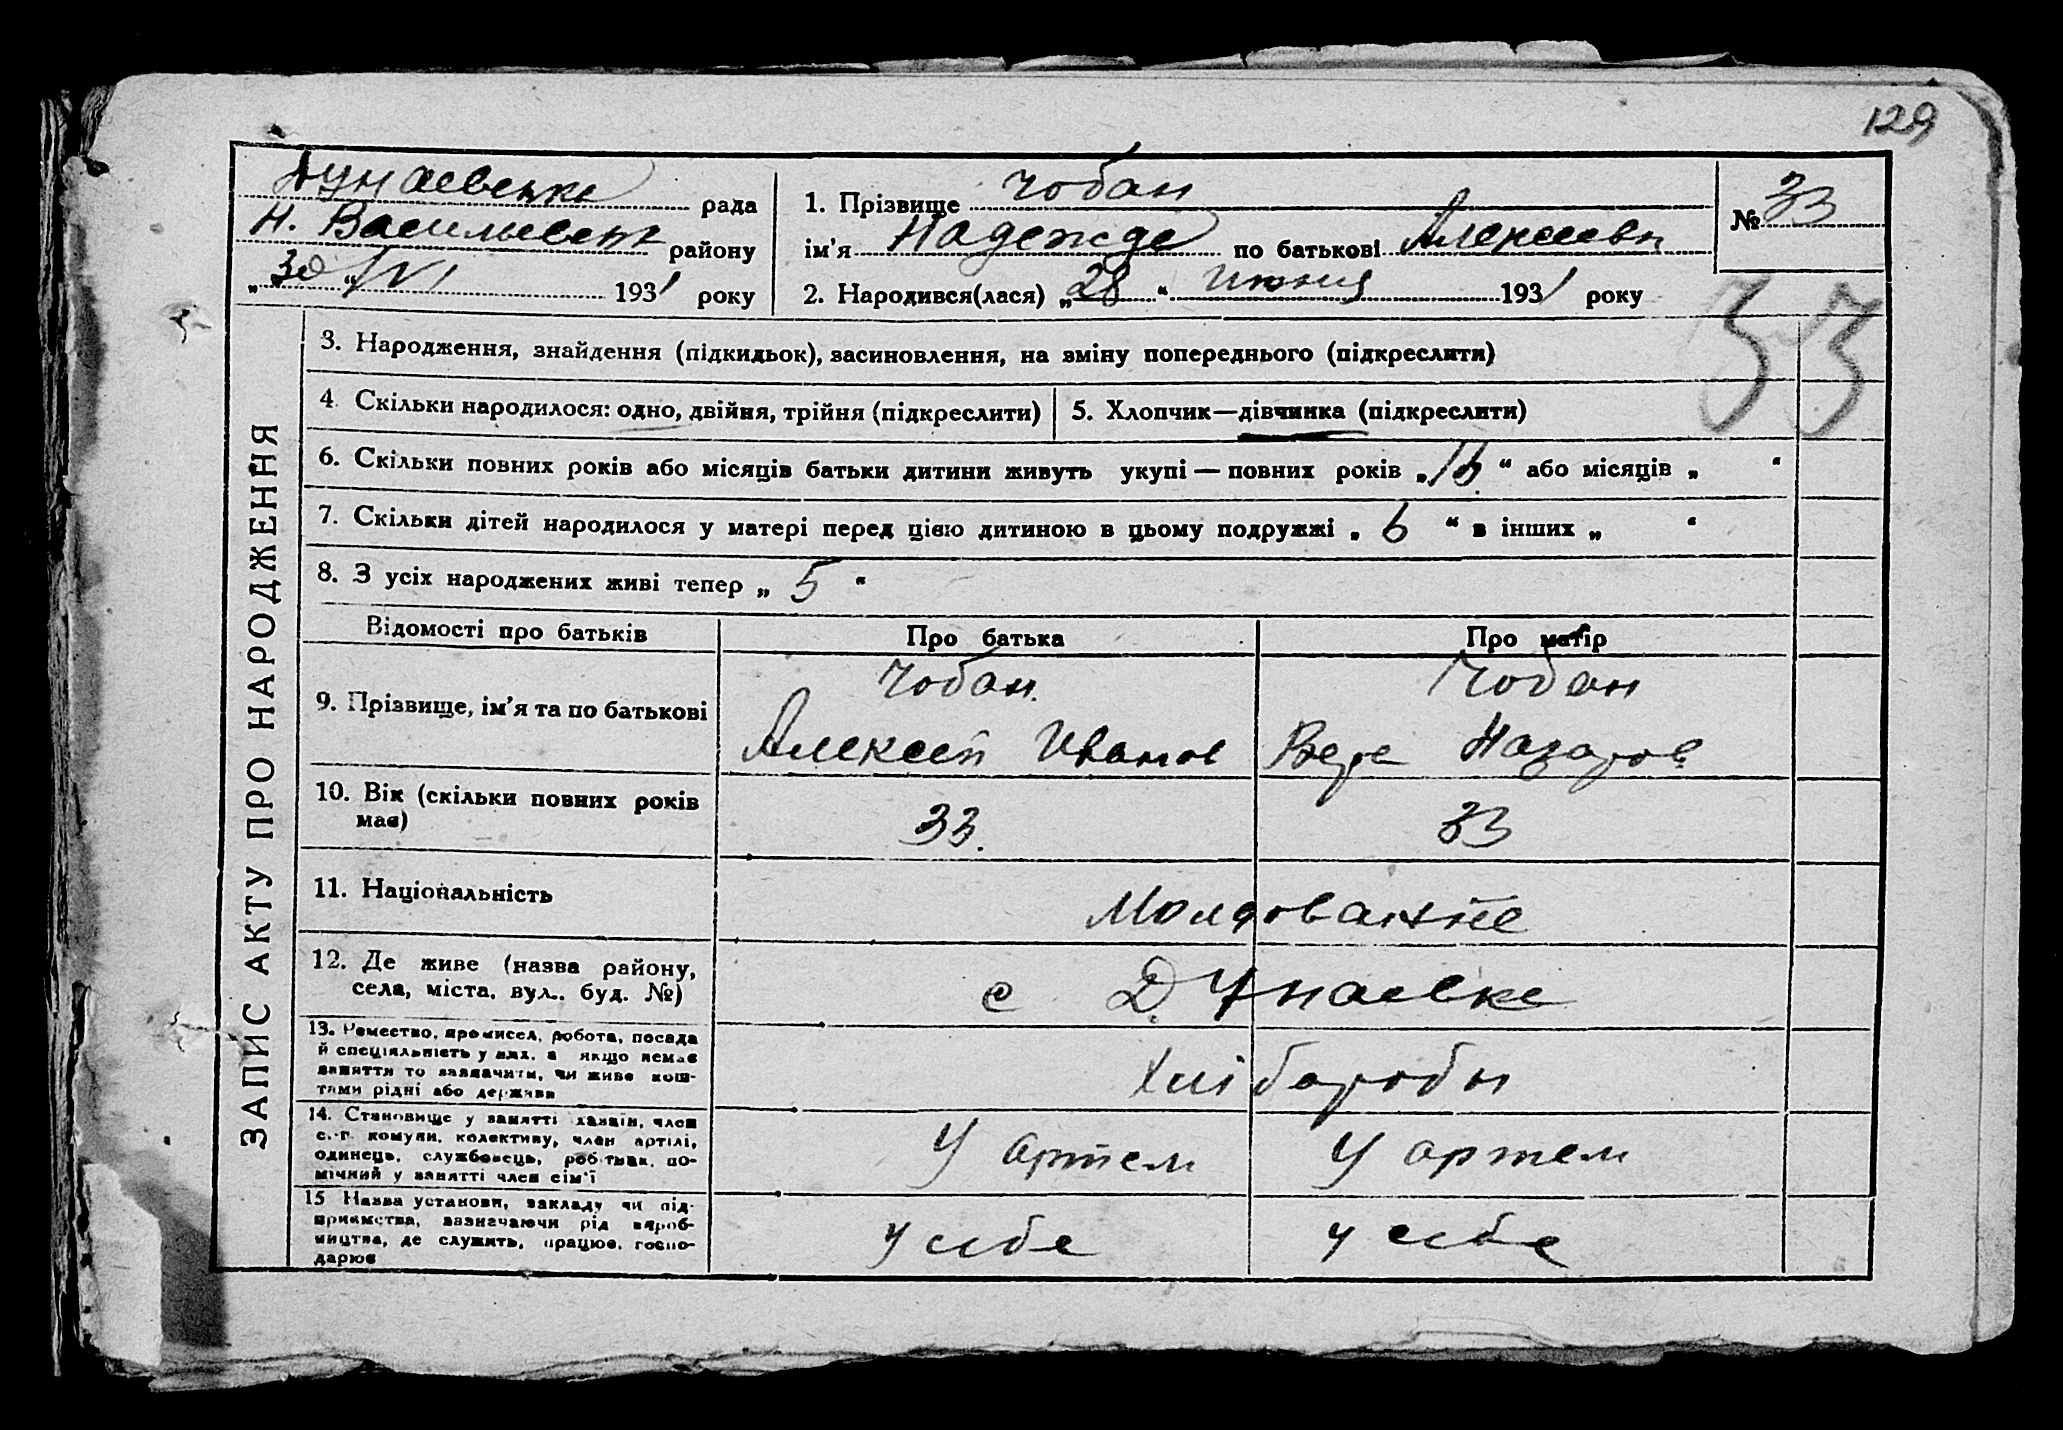 129
Дунаевська рада
Н. Васильевськ району
„30“ VI 1931 року
1. Прізвище Чобан
ім'я Надежде по батькові Алексеевн
2. Народився(лася) „28“ июня 1931 року
№ 33
33
ЗАПИС АКТУ ПРО НАРОДЖЕННЯ
3. Народження, знайдення (підкидьок), засиновлення, на зміну попереднього (підкреслити)
4. Скільки народилося: одно, двійня, трійня (підкреслити)
5. Хлопчик—дівчинка (підкреслити)
6. Скільки повних років або місяців батьки дитини живуть укупі — повних років „16“ або місяців „ “
7. Скільки дітей народилося у матері перед цією дитиною в цьому подружжі „6“ в інших „ “
8. З усіх народжених живі тепер „5“
Відомості про батьків
Про батька
Про матір
9. Прізвище, ім'я та по батькові
Чобан
Алексей Иванов
Чобан
Вера Назаров
10. Вік (скільки повних років
має)
33.
33
11. Національність
Молдование
12. Де живе (назва району,
села, міста, вул., буд. №)
с Дунаевке
13. Ремество, промисел, робота, посада
й спеціяльність у них, а якщо немає
заняття то зазначити, чи живе кош-
тами рідні або держави
Хліборобы
14. Становище у занятті хазяїн, член
с.-г. комуни, колективу, член артілі,
одинець, службовець, робітник, по-
мічний у занятті член сім'ї
У артели
У артели
15 Назва установи, закладу чи під-
приємства, зазначаючи рід вироб-
ництва, де служить, працює, госпо-
дарює
у себе
у себе